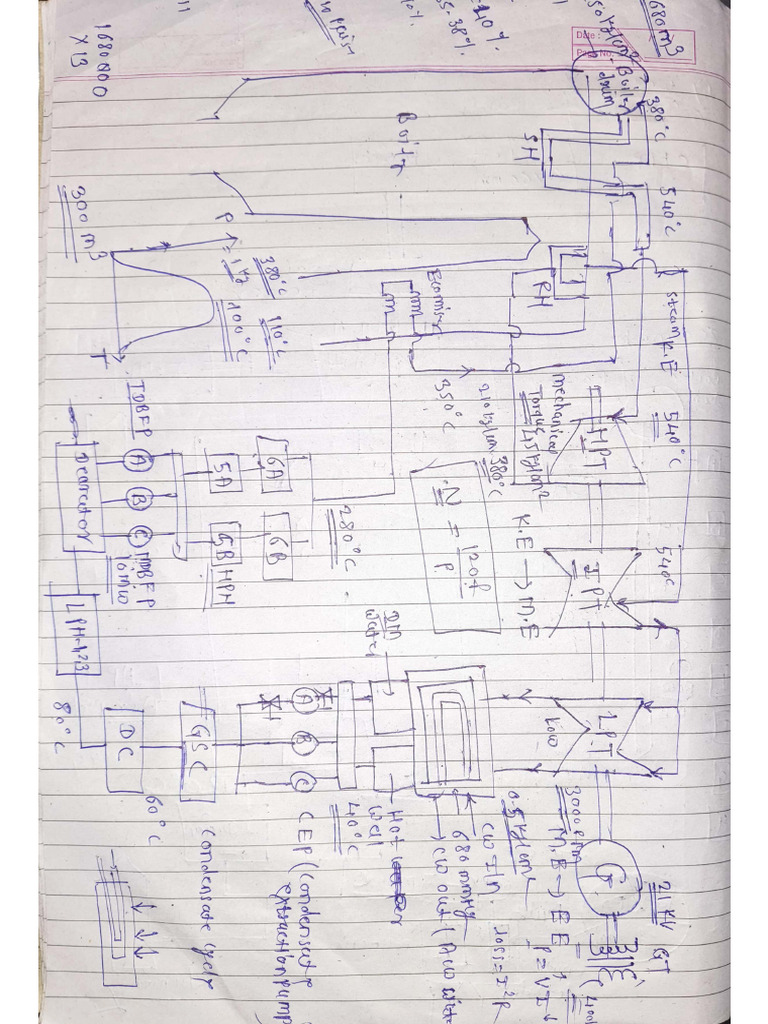 680 m3
Date :
Page No.
= 40%
35-38%
1680000
X 13
Boiler
drum
380°C
SH
540°C
Boiler
RH
steam K.E
540°C
540°C
HPT
IPT
LPT
Low
mechanical
Torque
45 kg/cm2
K.E → M.E
G
21 KV
GT
3000 rpm
M.E → E.E
P = VI
loss = I²R
0.5 kg/cm2
CW In.
680 mmHg
CW out
N = 120f
P
210 kg/cm2
380°C
350°C
Economiser
P
= 1 kg
380°C
110°C
100°C
T
300 m3
280°C
6A
6B
5A
5B
HPH
TDBFP
A
B
C
MDBFP
10 MW
Dearator
LPH-123
80°C
DC
60°C
GSC
A
B
C
CEP (condensate
extraction pump
DM
water
Hot
well
40°C
condensate cycle